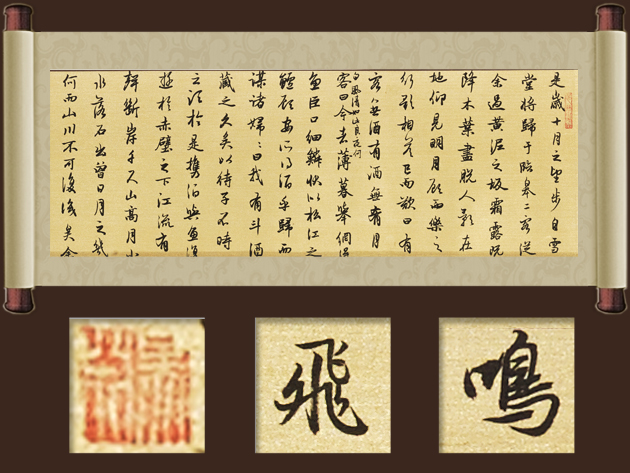 是歲十月之望步自雪
堂將歸于臨皋二客從
余過黃泥之坂霜露既
降木葉盡脫人影在
地仰見明月顧而樂之
行歌相答已而歎曰有
客無酒有酒無肴月
白風清如此良夜何
客曰今者薄暮舉網得
魚巨口細鱗狀似松江之
鱸顧安所得酒乎歸而
謀諸婦〻曰我有斗酒
藏之久矣以待子不時
之須於是攜酒與魚復
遊於赤壁之下江流有
聲斷岸千尺山高月小
水落石出曾日月之幾
何而山川不可復識矣余
鳴
飛